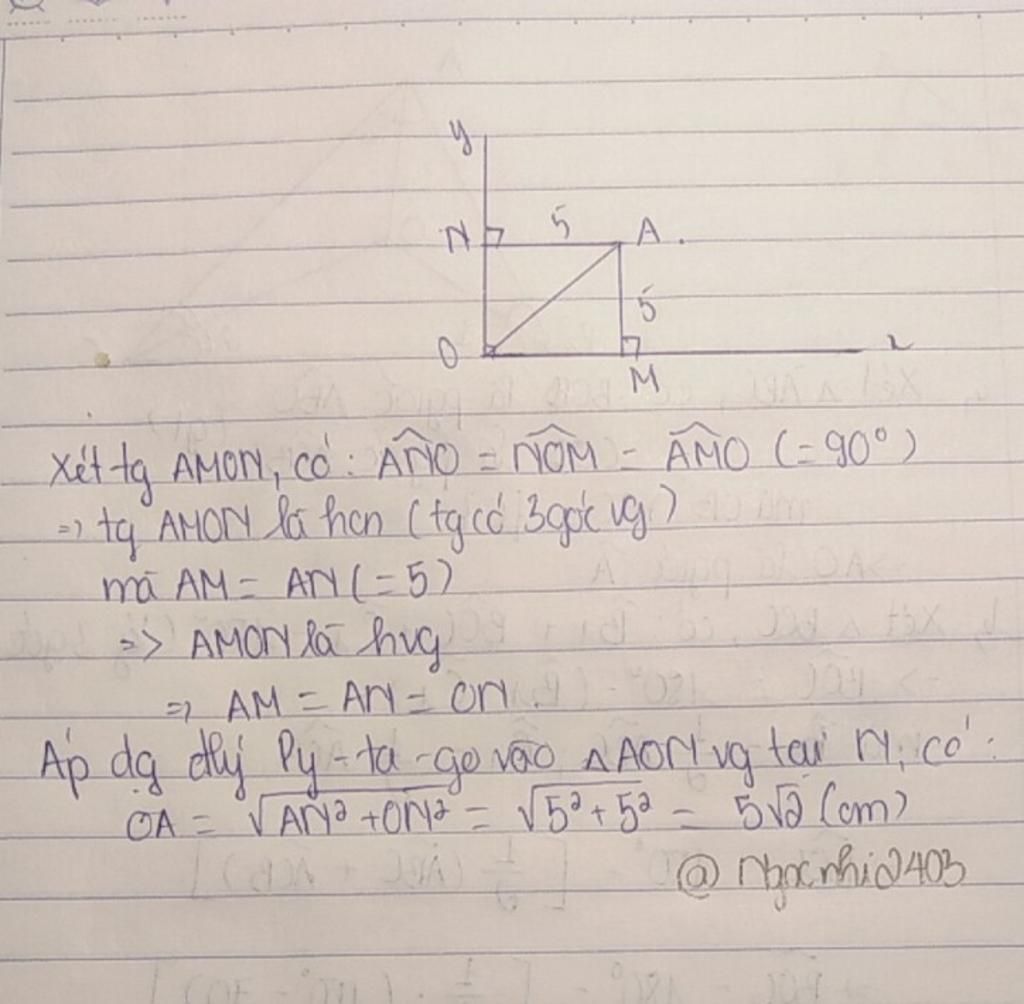 y
N 5 A .
5
O M x
Xét tg AMON, có: ANO = NOM = AMO (= 90°)
=> tg AMON là hcn (tg có 3 góc vg)
mà AM = AN (= 5)
=> AMON là hvg
=> AM = AN = ON.
Áp dg đlý Py-ta-go vào △AON vg tại N, có:
OA = √AN² + ON² = √5² + 5² = 5√2 (cm)
@ Ngocnhi2403